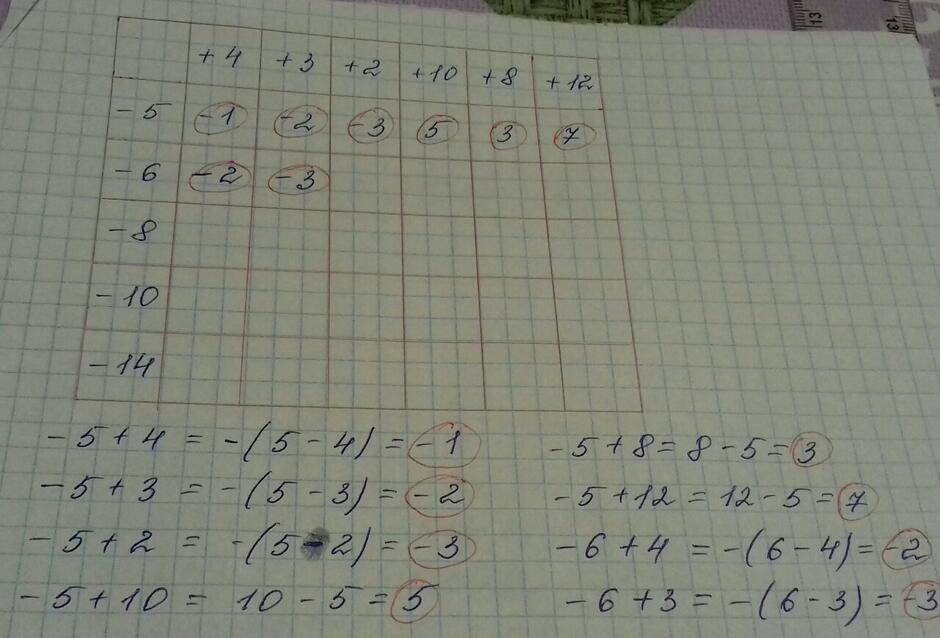 13 13
+4 +3 +2 +10 +8 +12
-5 -1 -2 -3 5 3 7
-6 -2 -3
-8
-10
-14
-5+4 = -(5-4) = -1
-5+3 = -(5-3) = -2
-5+2 = -(5-2) = -3
-5+10 = 10-5 = 5
-5+8 = 8-5 = 3
-5+12 = 12-5 = 7
-6+4 = -(6-4) = -2
-6+3 = -(6-3) = -3